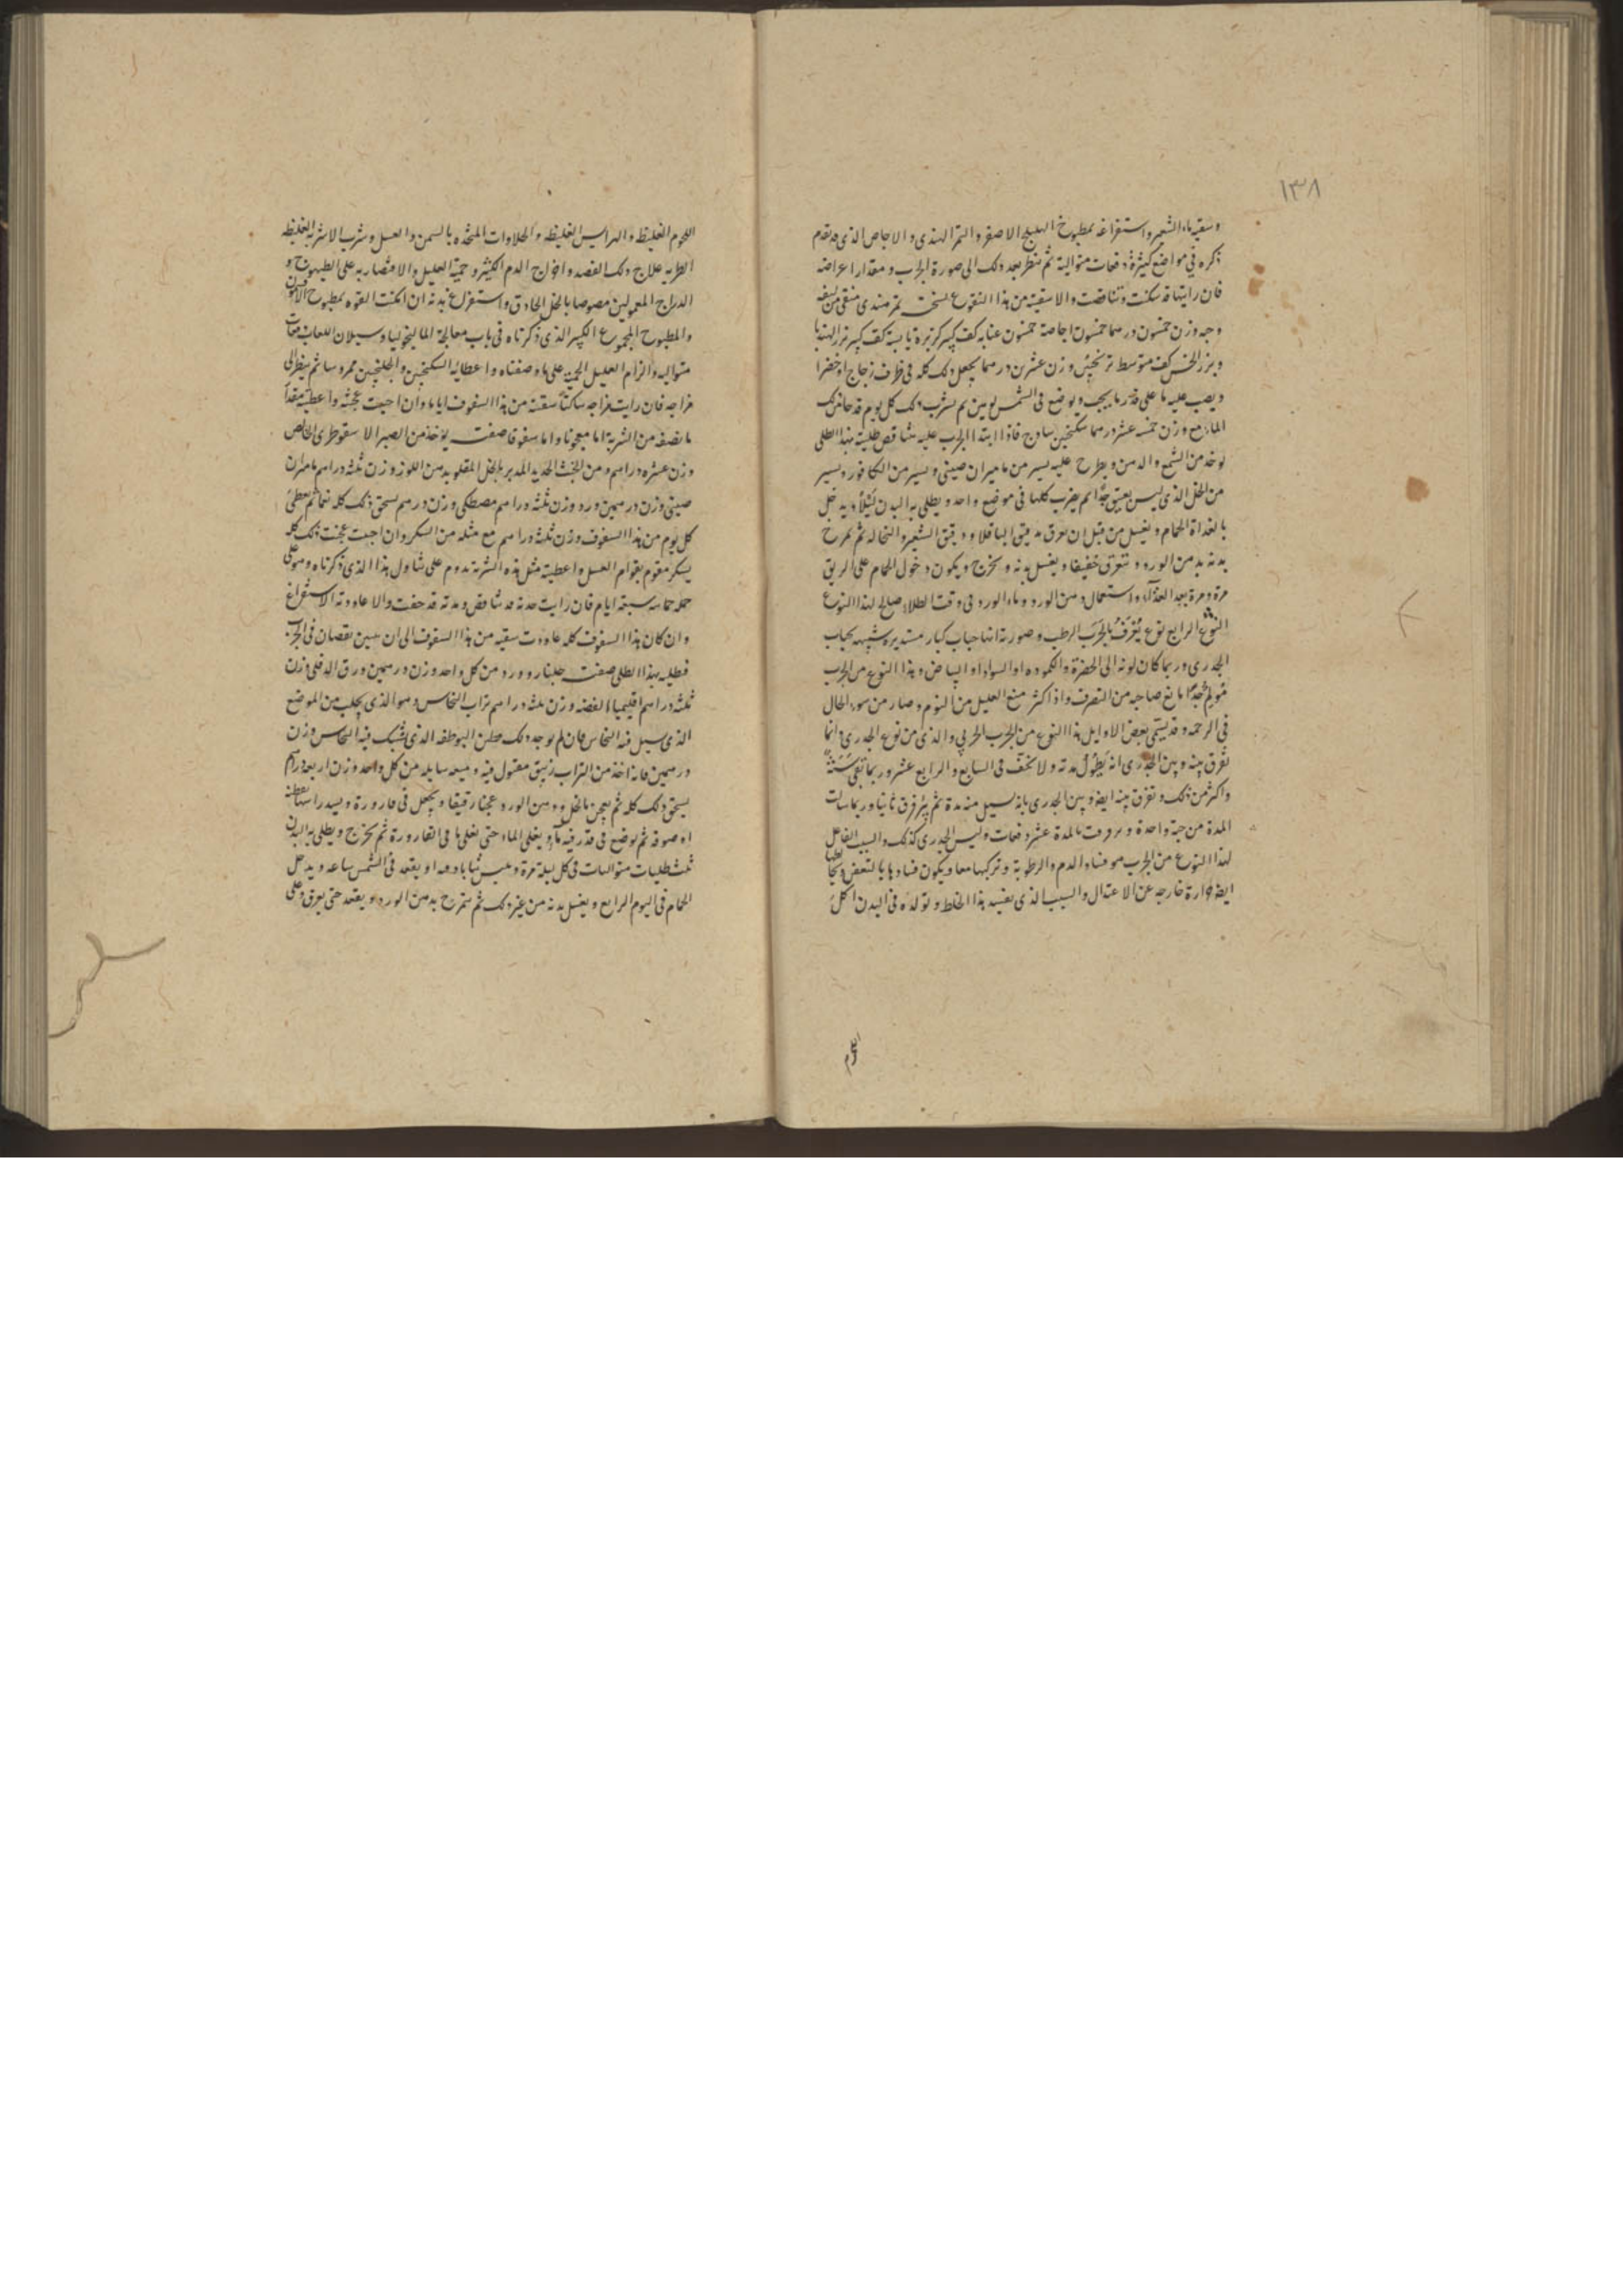 ١٣٨
وسقيه ماء الشعير واستفراغه بمطبوخ الهليلج الاصفر والتمر الهندى والاجاص الذى قد تقدم
ذكره فى مواضع كثيرة دفعات متوالية ثم تنظر بعد ذلك الى صورة الجرب ومقدار اعراضه
فان رايتها قد سكنت وتناقصت والا سقيته من هذا النقوع نسخته تمر هندى منقى من ليفه
وحبه وزن خمسون درهما خمسون اجاصة خمسون عنابه كف كبير كزبرة يابسة كف كبير بزر الهندبا
وبزر الخس كف متوسط ترنجبين وزن عشرين درهما يجعل ذلك كله فى ظرف زجاج او خضرا
ويصب عليه ما على قدر ما يجب ويوضع فى الشمس يومين ثم يشرب ذلك كل يوم قدحا من ذلك
الماء مع وزن خمسة عشر درهما سكنجبين ساذج فاذا ابتدا الجرب عليه يتناقص طليته بهذا الطلى
يوخذ من الشمع والدهن ويطرح عليه يسير من ماميران صينى ويسير من الكافور ويسير
من الخل الذى ليس بعتيق جدا ثم يضرب كلها فى موضع واحد ويطلى به البدن ليلا ويدخل
بالغداة الحمام ويغسل من قبل ان يعرق بدقيق الباقلا ودقيق الشعير والنخاله ثم يمرخ
بدنه بدهن الورد ويتعرق خفيفا ويغسل بدنه ويخرج ويكون دخول الحمام على الريق
مرة ومرة بعد الغذآء واستعمال دهن الورد وماء الورد فى وقت الطلاء صالح لهذا النوع
النوع الرابع نوع يُعْرَفُ بالجَرَب الرطب وصورته انها حباب كبار مستديره شبيهه بحباب
الجدرى وربما كان لونه الى الخضرة والكموده او السواد او البياض وهذا النوع من الجرب
مُولِمٌ جدًا مانع صاحبه من التصرف واذا كثر منع العليل من النوم وصار من سوء الحال
فى الرحمه وقد يسمى بعض الاوايل هذا النوع من الجرب الحربى والذى من نوع الجدرى وانما
تفرق بينه وبين الجدرى انه يَطُوْلُ مدته ولا يخف فى السابع والرابع عشر وربما بقى سَنَةً
واكثر من ذلك وتفرق بينه ايضا وبين الجدرى بانه يسيل منه مدة ثم يتفرق ثانيا وربما سالت
المدة من حبة واحدة عشر دفعات وليس الجدرى كذلك والسبب الفاعل
لهذا النوع من الجرب هو فساد الدم والرطوبة وتركبها معا ويكون فسادها بالتعفن
ايضا حرارة خارجه عن الاعتدال والسبب الذى يفسد هذا الخلط وتولده فى البدن اكل
اللحوم الغليظه والهرايس الغليظه والحلاوات المتخذه بالسمن والعسل وشرب الاشربه الغليظه
الطريه علاج ذلك الفصد واخراج الدم الكثير وحمية العليل والاقتصار به على الطيهوج و
الدراج المعمولين مصوصا بالخل الحاذق واستفراغ بدنه ان امكنت القوه بمطبوخ الافتيمون
والمطبوخ المجموع الكبير الذى ذكرناه فى باب معالجة الماليخوليا وسيلان اللعاب دفعات
متواليه والزام العليل الحمية على ما وصفناه واعطائه السكنجبين والجلنجبين ممروسا ثم ينظر الى
مزاجه فان رايت مزاجه ساكنا سقيته من هذا السفوف اياما وان احببت عجنته واعطيته مقدار
ما نصفه من الشربة اما معجونا واما سفوفا صفته يؤخذ من الصبر الاسقوطرى الخالص
وزن عشره دراهم ومن الخبث الحديد المدبر بالخل المقلو بدهن اللوز وزن ثلثه دراهم ماميران
صينى وزن درهمين ورد وزن ثلثه دراهم مصطكى وزن درهم يسحق ذلك كله نعما ثم يعطى
كل يوم من هذا السفوف وزن ثلثه دراهم مع مثله من السكر وان احببت عجنت ذلك كله
بسكر مقوم بقوام العسل واعطيته مثل هذه الشربة يدوم على تناول هذا الذى ذكرناه وهو على
جملة حماه سبعة ايام فان رايت مدته قد تناقص ومدته قد جفت والا عاودته الاستفراغ
وان كان هذا السفوف كله عاودت سقيه من هذا السفوف الى ان يتبين نقصان فى الجرب
فطليه بهذا الطلى صفته جلنار وورد من كل واحد وزن درهمين ورق الدفلى وزن
ثلثه دراهم اقليميا الفضه وزن ثلثه دراهم تراب النحاس وهو الذى يجلب من الموضع
الذى يسيل فيه النحاس فان لم يوجد ذلك فطين البوطقه الذى يسبك فيه النحاس وزن
درهمين فانه اخذ من التراب زيبق مقتول فيه وميعه سايله من كل واحد وزن اربعة دراهم
يسحق ذلك كله ثم يعجن بالخل ودهن الورد عجنا رقيقا ويجعل فى قارورة ويسد راسها بقطنه
او صوفه ثم يوضع فى قدر فيه مآء ويغلى الماء حتى يغلى ما فى القارورة ثم يخرج ويطلى به البدن
ثلث طليات متواليات فى كل ليلة مرة ويلبس ثيابا ويقعد فى الشمس ساعه ويدخل
الحمام فى اليوم الرابع ويغسل بدنه من غير ذلك ثم يتمرخ بدهن الورد ويقعد حتى يعرق وعلى